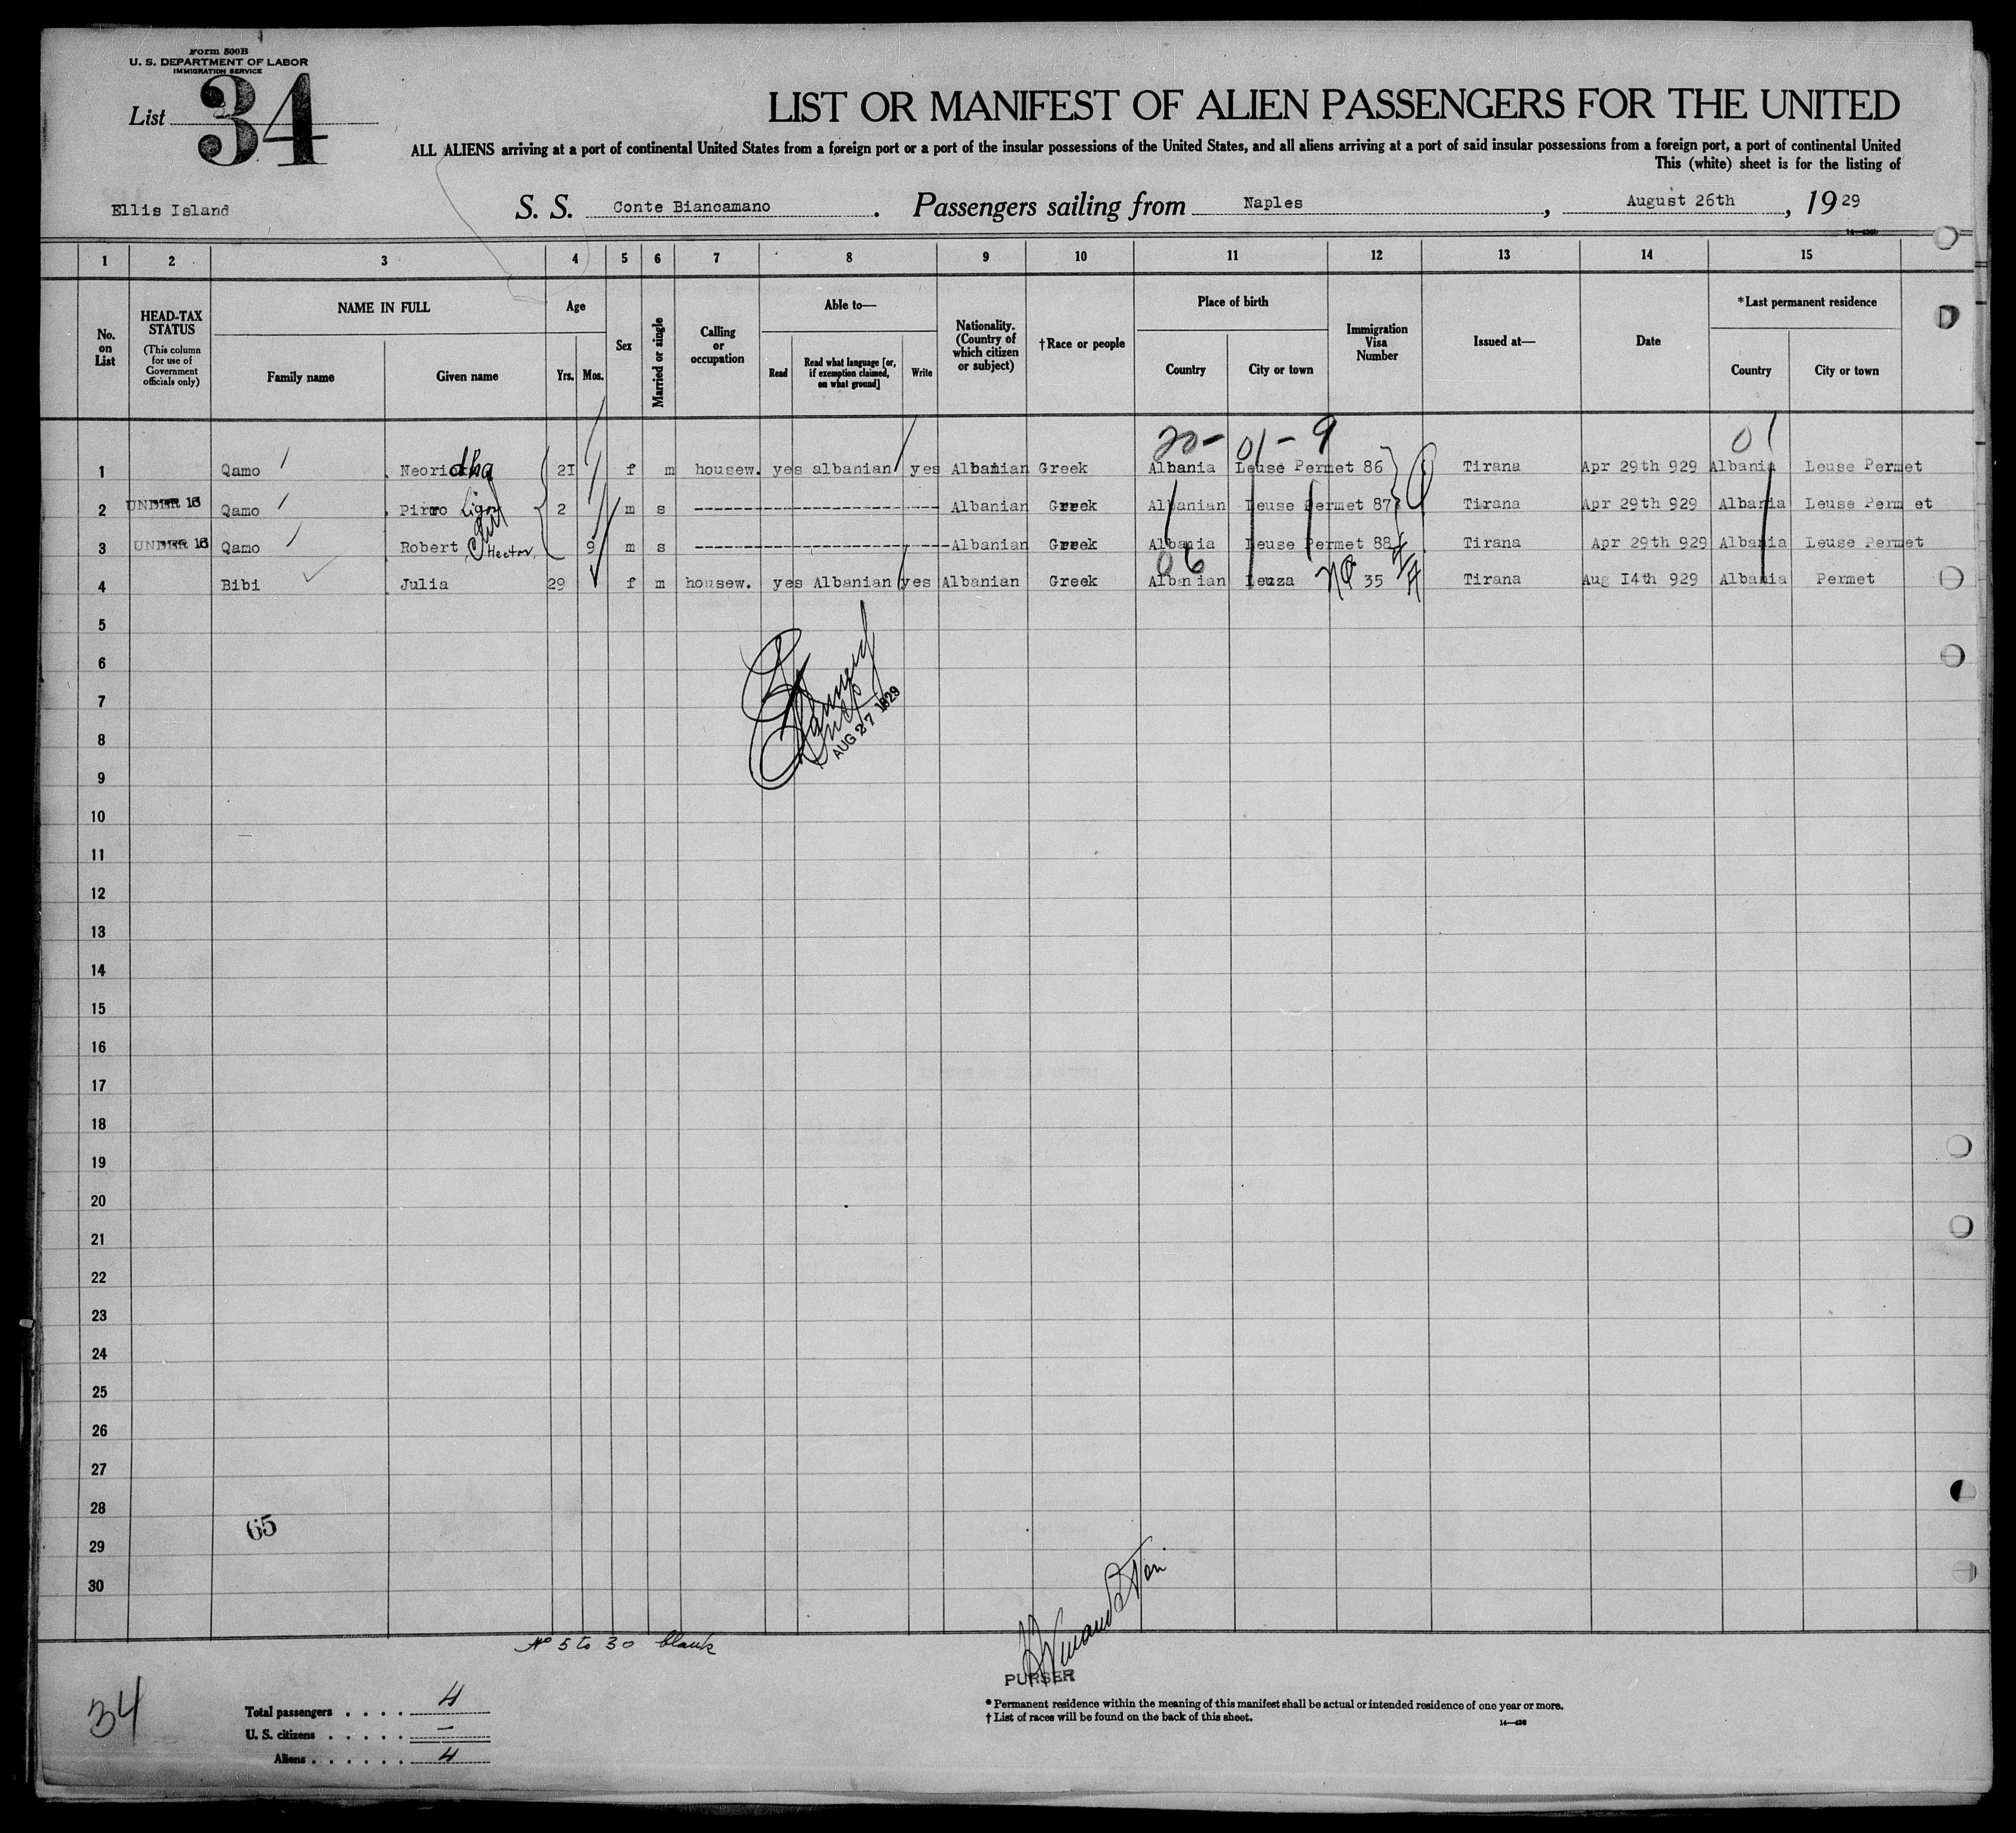 Form 500B
U. S. DEPARTMENT OF LABOR
IMMIGRATION SERVICE
List 34
LIST OR MANIFEST OF ALIEN PASSENGERS FOR THE UNITED
ALL ALIENS arriving at a port of continental United States from a foreign port or a port of the insular possessions of the United States, and all aliens arriving at a port of said insular possessions from a foreign port, a port of continental United
This (white) sheet is for the listing of
Ellis Island
S. S. Conte Biancamano. Passengers sailing from Naples, August 26th, 1929
1 2 3 4 5 6 7 8 9 10 11 12 13 14 15
No. on List
HEAD-TAX STATUS
(This column for use of Government officials only)
NAME IN FULL
Family name
Given name
Age
Yrs.
Mos.
Sex
Married or single
Calling or occupation
Able to—
Read
Read what language [or, if exemption claimed, on what ground]
Write
Nationality. (Country of which citizen or subject)
†Race or people
Place of birth
Country
City or town
Immigration Visa Number
Issued at—
Date
*Last permanent residence
Country
City or town
20- 01- 9 01
1 Qamo Neori dha 21 f m housew. yes albanian yes Albanian Greek Albania Leuse Permet 86 Tirana Apr 29th 929 Albania Leuse Permet
2 UNDER 16 Qamo Pirro Ligor 2 m s Albanian Greek Albanian Leuse Permet 87 Tirana Apr 29th 929 Albania Leuse Perm et
3 UNDER 16 Qamo Robert Hector 9 m s Albanian Greek Albania Leuse Permet 88 Tirana Apr 29th 929 Albania Leuse Permet
06
4 Bibi Julia 29 f m housew. yes Albanian yes Albanian Greek Albanian Leuza NQ 35 Tirana Aug 14th 929 Albania Permet
5
6
7
AUG 27 1929
8
9
10
11
12
13
14
15
16
17
18
19
20
21
22
23
24
25
26
27
28
65
29
30
No 5 to 30 blank
PURSER
34
Total passengers . . . . 4
U. S. citizens . . . . . –
Aliens . . . . . . 4
* Permanent residence within the meaning of this manifest shall be actual or intended residence of one year or more.
† List of races will be found on the back of this sheet.
14—436